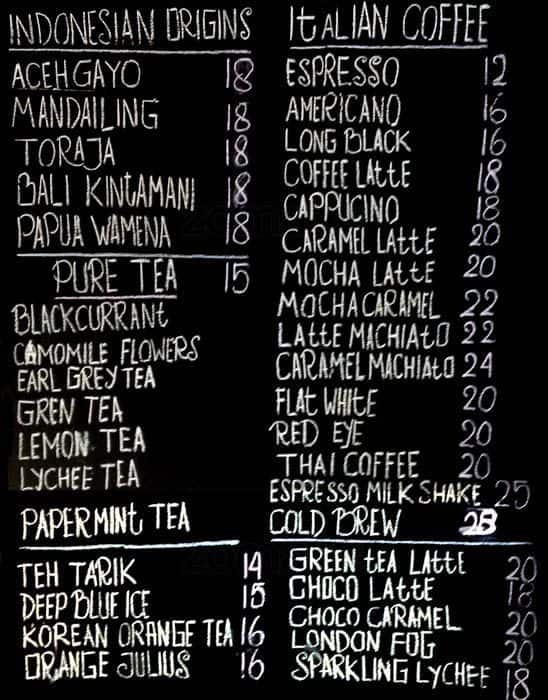 INDONESIAN ORIGINS
ACEH GAYO 18
MANDAILING 18
TORAJA 18
BALI KINtAMANI 18
PAPUA WAMENA 18
PURE TEA 15
BLACKCURRANt
CAMOMILE FLOWERS
EARL GREY TEA
GREN TEA
LEMON TEA
LYCHEE TEA
PAPERMINt TEA
TEH TARIK 14
DEEP BLUE ICE 15
KOREAN ORANGE TEA 16
ORANGE JULIUS 16
ItALIAN COFFEE
ESPRESSO 12
AMERICANO 16
LONG BLACK 16
COFFEE LAttE 18
CAPPUCINO 18
CARAMEL LAttE 20
MOCHA LAttE 20
MOCHA CARAMEL 22
LAttE MACHIAtO 22
CARAMEL MACHIAtO 24
FLAt WHItE 20
RED EYE 20
THAI COFFEE 20
ESPRESSO MILK SHAKE 25
COLD BREW
GREEN tEA LAttE 20
CHOCO LAttE 18
CHOCO CARAMEL 20
LONDON FOG 20
SPARKLING LYCHEE 18